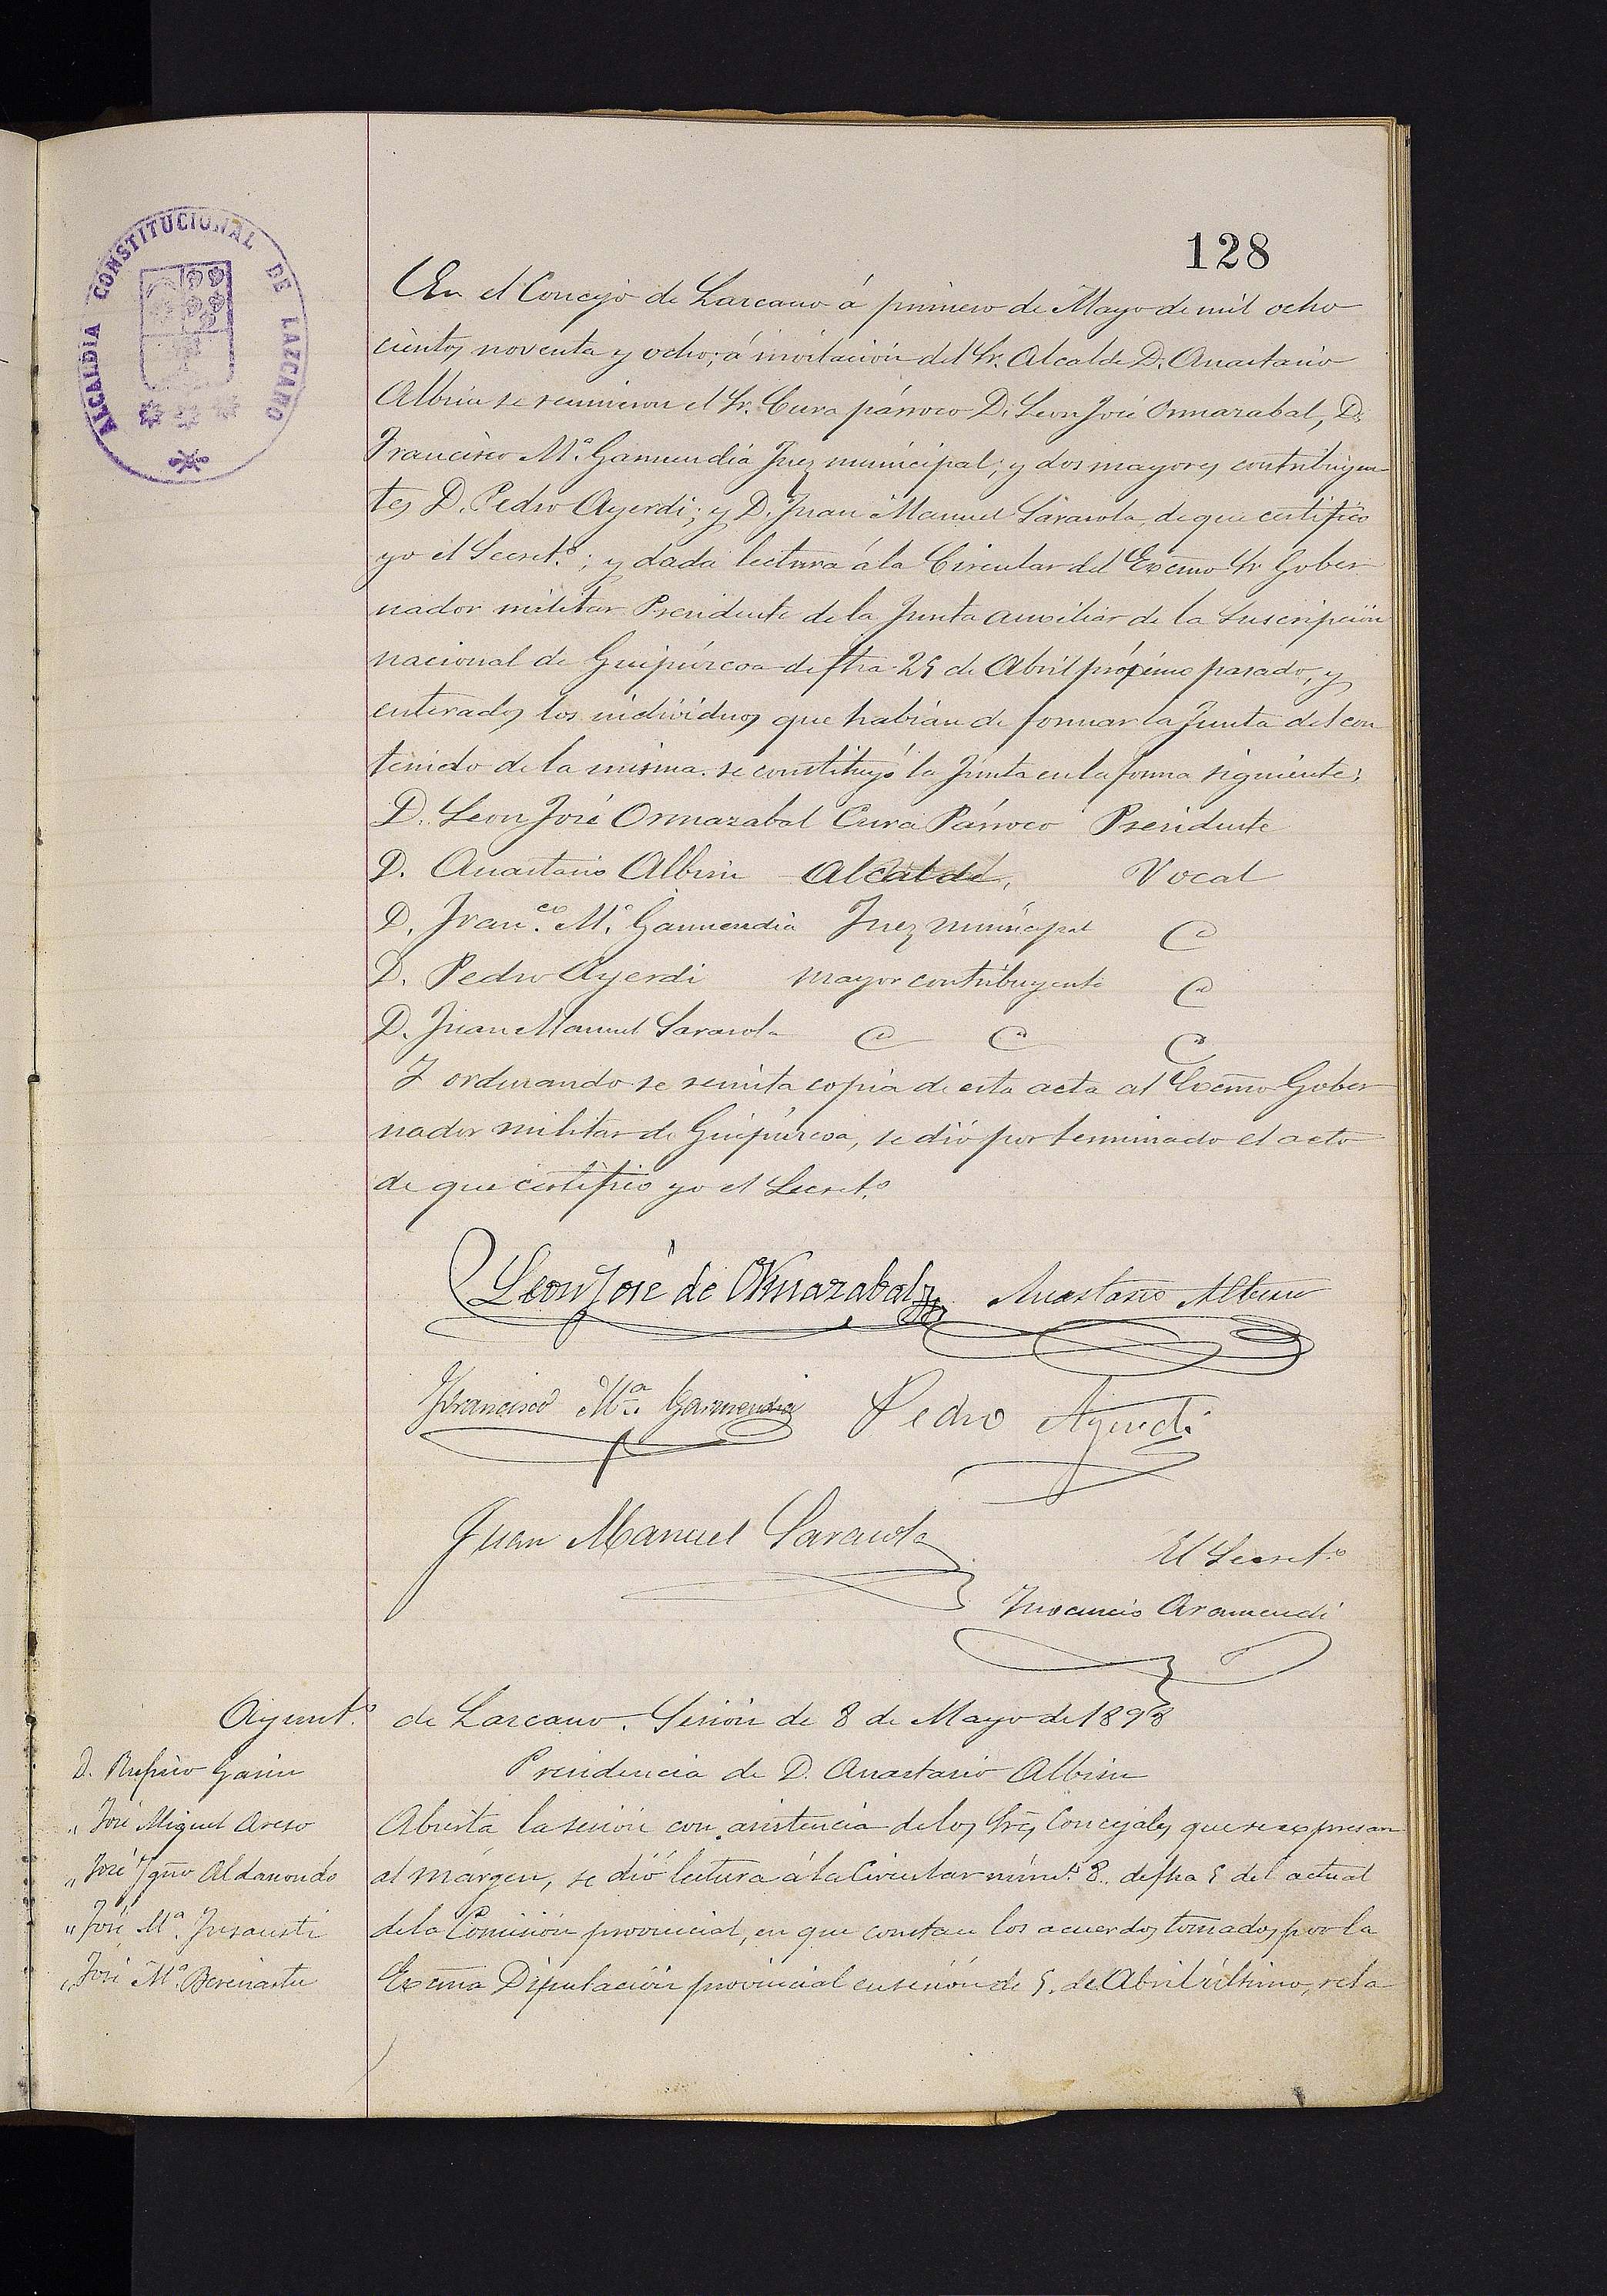 128
ALCALDIA CONSTITUCIONAL DE LAZCANO
En el Concejo de Lazcano á primero de Mayo de mil ocho
cientos noventa y ocho; á invitación del Sr. Alcalde D. Anastasio
Albisu se reunieron el Sr. Cura párroco D. Leon José Ormazabal, D.
Francisco Mª Garmendia Juez municipal; y dos mayores contribuyen-
tes D. Pedro Ayerdi; y D. Juan Manuel Sarasola, de que certifico
yo el Secretº; y dada lectura á la Circular del Excmo Sr Gober
nador militar Presidente de la Junta auxiliar de la Suscripción
nacional de Guipúzcoa de fha 29 de Abril próximo pasado, y
enterados los individuos que habián de formar la Junta del con
tenido de la misma. se constituyó la Junta en la forma siguiente:
D. Leon José Ormazabal Cura Párroco Presidente
D. Anastasio Albisu Alcalde, Vocal
D. Franco. Mª Garmendia Juez municipal
D. Pedro Ayerdi mayor contribuyente
D. Juan Manuel Sarasola
Y ordenando se remita copia de esta acta al Excmo Gober
nador militar de Guipúzcoa, se dió por terminado el acto
de que certifico yo el Secret.º
Leon José de Ormazabal Anastasio Albisu
Francisco Mª. Garmendia Pedro Ayerdi
Juan Manuel Sarasola
El Secret.º
Inocencio Aramendi
Ayunt.º de Lazcano. Sesión de 8 de Mayo de 1898
Presidencia de D. Anastasio Albisu
D. Rufino Garin
" José Miguel Areso
" José Ygnº Aldasondo
" José Mª. Insausti
" José Mª. Bereciartu
Abierta la sesión con asistencia de los Sres Concejales que se expresan
al márgen, se dió lectura á la Circular núm.º 8. de fha 5 del actual
de la Comisión provincial, en que constan los acuerdos tomados por la
Excma Diputación provincial en sesión de 5. de Abril último, rela